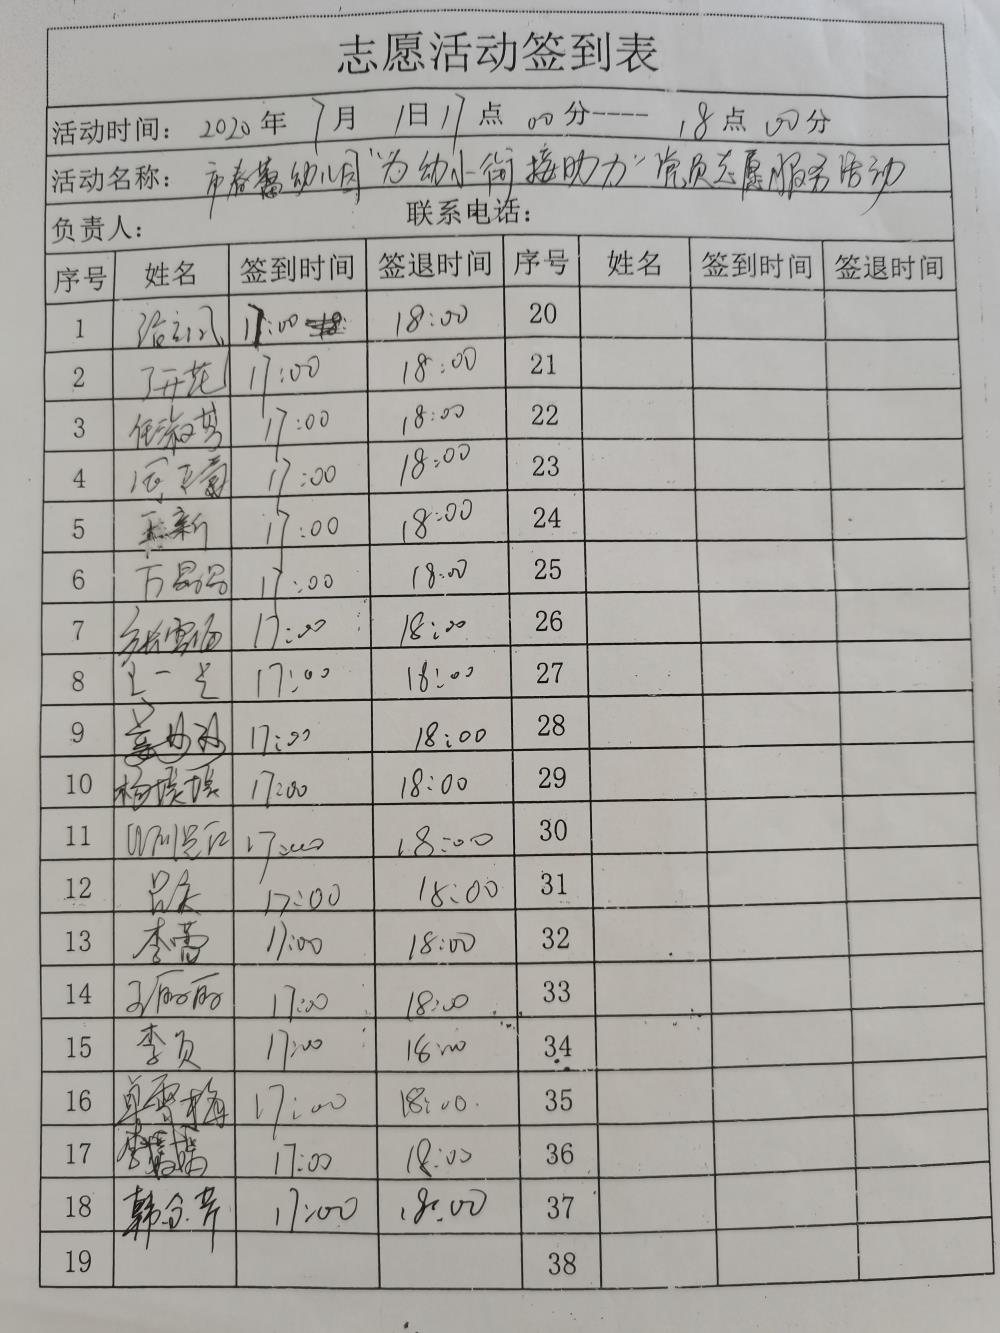 志愿活动签到表
活动时间: 2020年 7月 1日 17点 00分---- 18点 00分
活动名称: 市春蕙幼儿园"为幼小衔接助力"党员志愿服务活动
负责人: 联系电话:
序号 姓名 签到时间 签退时间 序号 姓名 签到时间 签退时间
1 17:00 18:00 20
2 丁开花 17:00 18:00 21
3 任淑芳 17:00 18:00 22
4 17:00 18:00 23
5 王新 17:00 18:00 24
6 17:00 18:00 25
7 17:00 18:00 26
8 17:00 18:00 27
9 17:00 18:00 28
10 杨瑛瑛 17:00 18:00 29
11 17:00 18:00 30
12 17:00 18:00 31
13 17:00 18:00 32
14 王丽丽 17:00 18:00 33
15 李贞 17:00 18:00 34
16 单雪梅 17:00 18:00 35
17 17:00 18:00 36
18 17:00 18:00 37
19 38